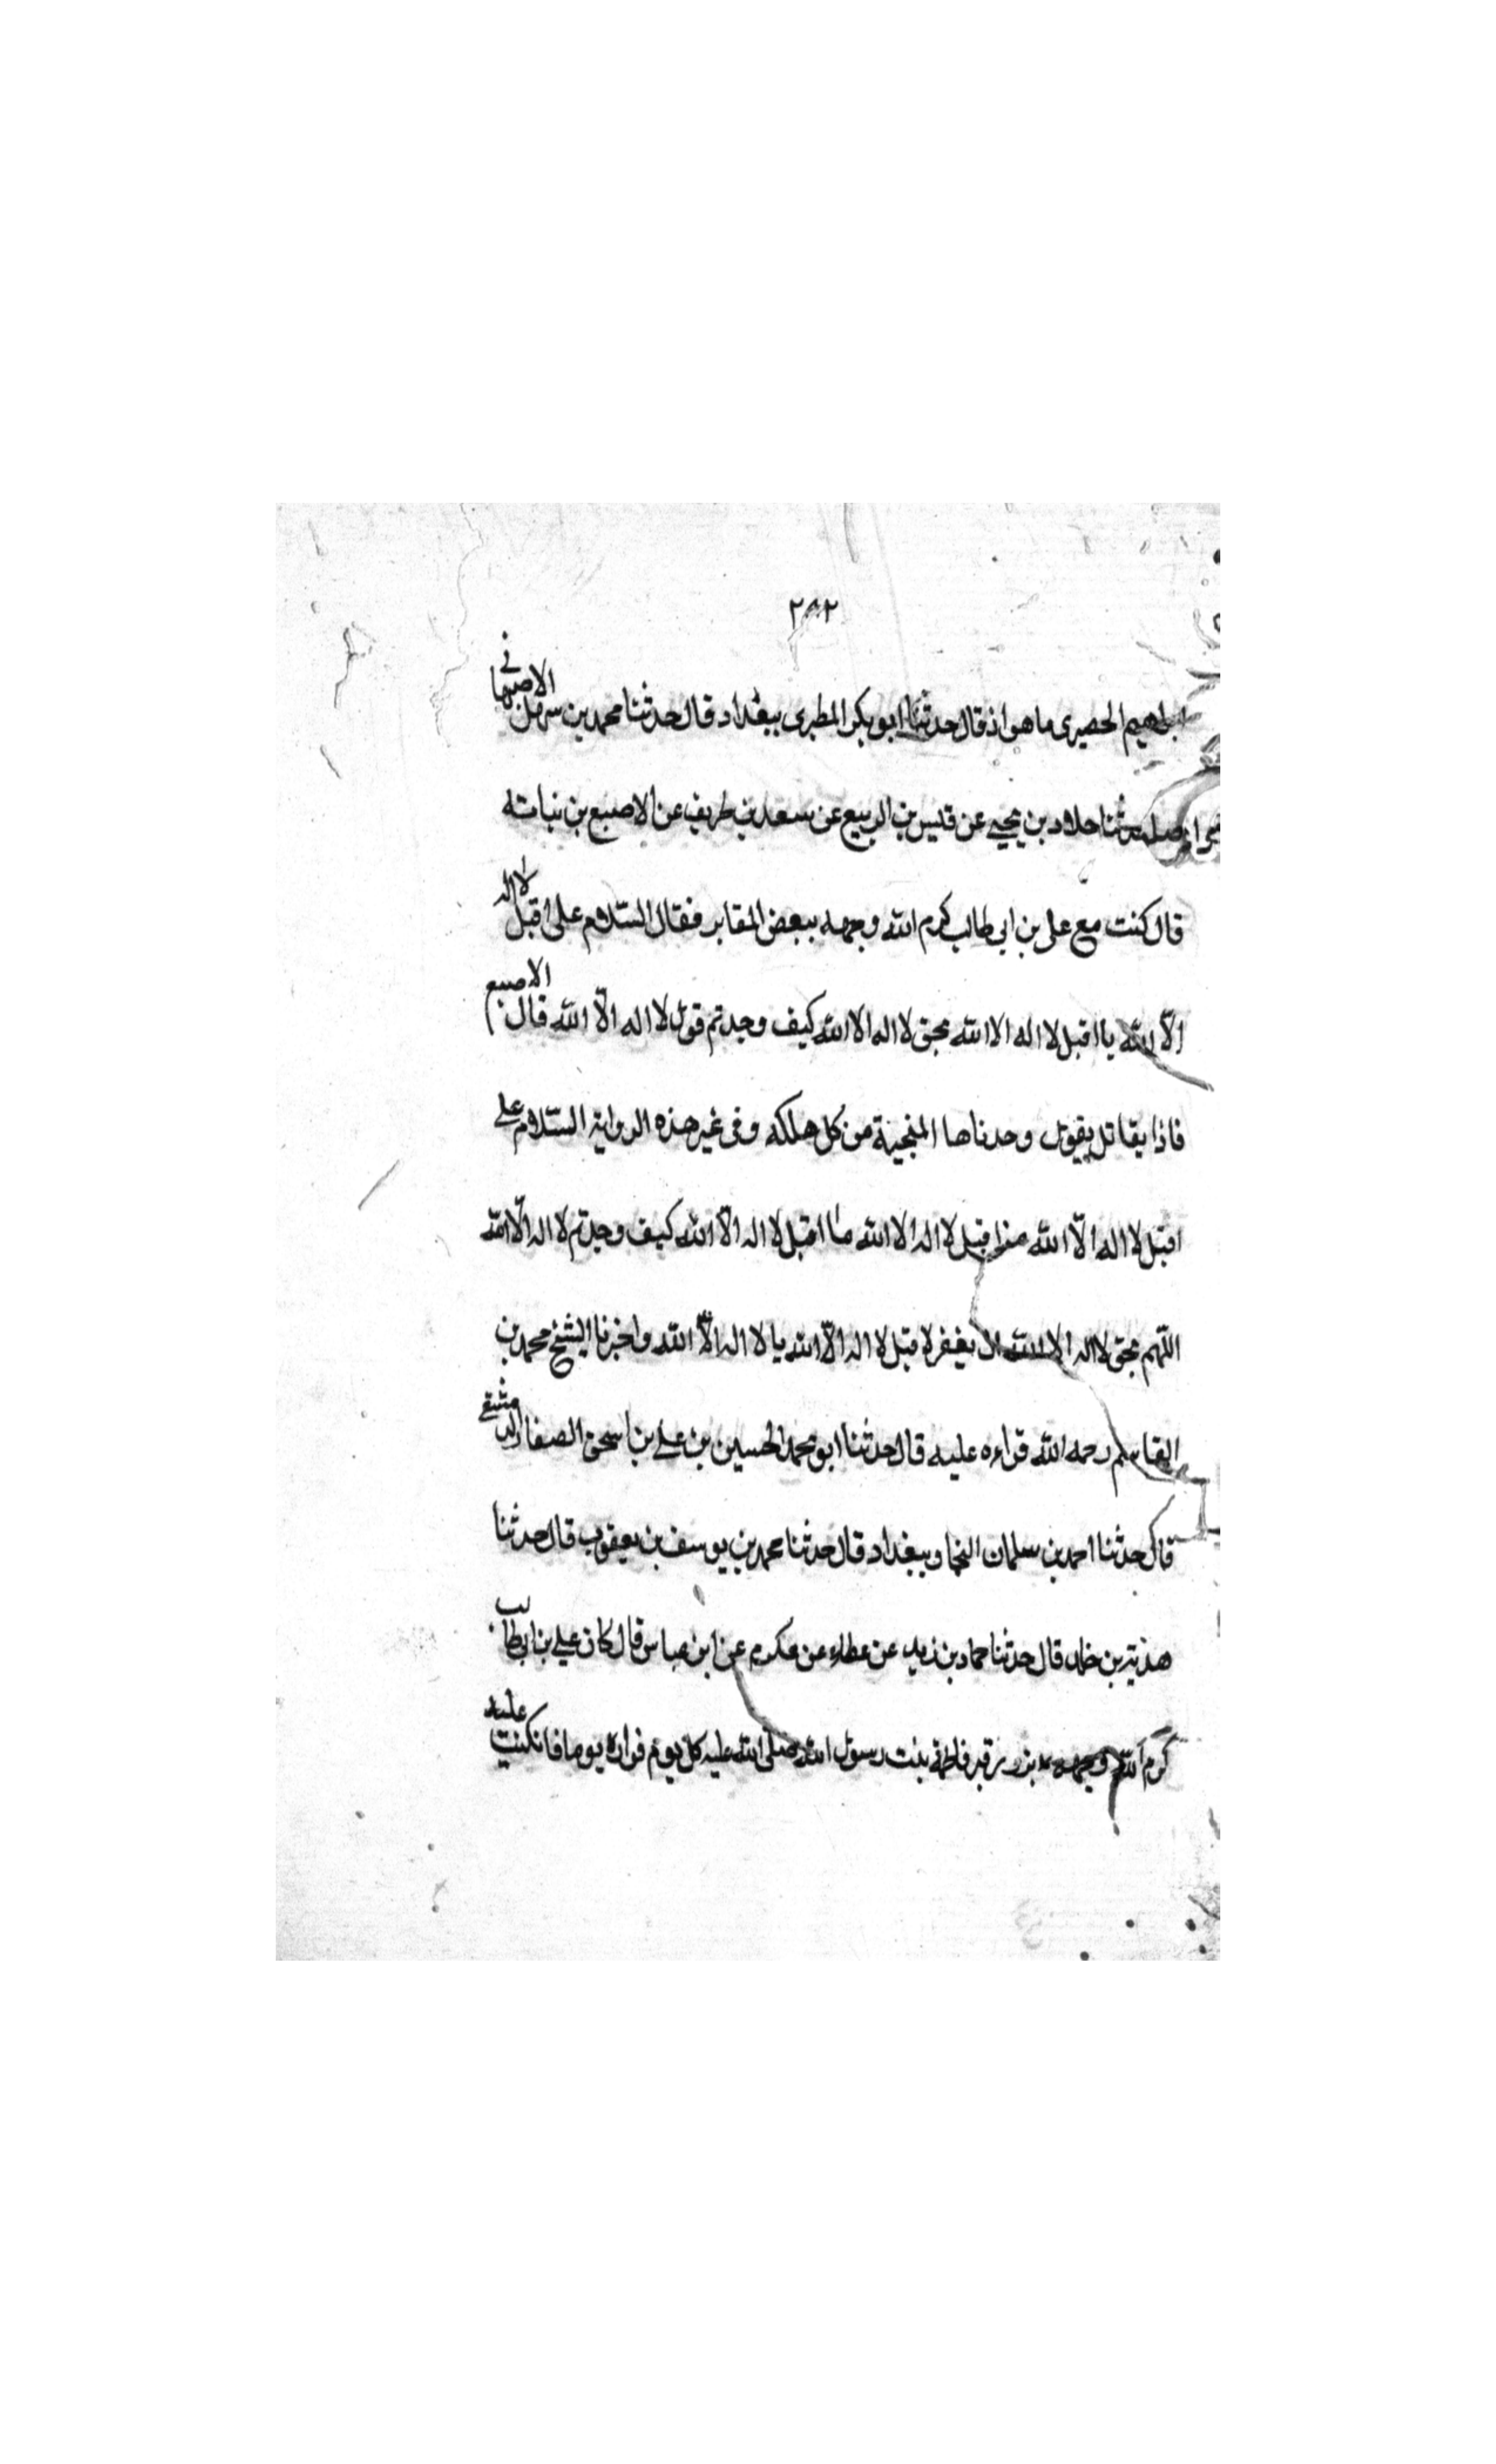 ٢٨٢
ابراهيم الحصيرى ماهواذ قال حدثنا ابو بكر المطيرى ببغداد قال حدثنا محمد بن سهل الاصبهانى
حدثنا خلاد بن يحيى عن قيس بن الربيع عن سعد بن طريف عن الاصبع بن نباته
قال كنت مع على بن ابى طالب كرم الله وجهه ببعض المقابر فقال السّلام على اقبل لا اله
الّا الله يا اقبل لا اله الا الله بحق لا اله الا الله كيف وجدتم قول لا اله الّا الله قال الاصبع
فاذا يقاتل يقول وحدناها المنجية من كل هلكه وفى غير هذه الرواية السّلام على
اقبل لا اله الّا الله من اقبل لا اله الا الله ما اقبل لا اله الّا الله كيف وجدتم لا اله الّا الله
اللّهم بحق لا اله الا الله يغفر لا قبل لا اله الّا الله يا لا اله الّا الله واخبرنا الشيخ محمد بن
القاسم رحمه الله قراءه عليه قال حدثنا ابو محمد الحسين بن على بن اسحق الصفار الدمشقى
قال حدثنا احمد بن سلمان النجاد ببغداد قال حدثنا محمد بن يوسف بن يعقوب قال حدثنا
هذبة بن خالد قال حدثنا حماد بن زيد عن عطاء عن عكرم عن ابن عباس قال كان على بن ابى طالب
كرم الله وجهه يزور قبر فاطمة بنت رسول الله صلى الله عليه كل يوم فزاره يوما فانكبت عليه